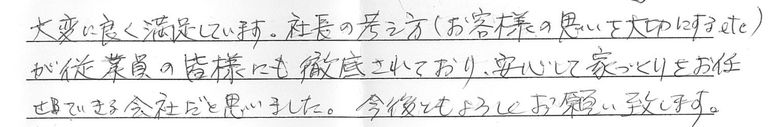 大変に良く満足しています。社長の考え方(お客様の思いを大切にするetc)
が従業員の皆様にも徹底されており、安心して家づくりをお任
せできる会社だと思いました。今後ともよろしくお願い致します。